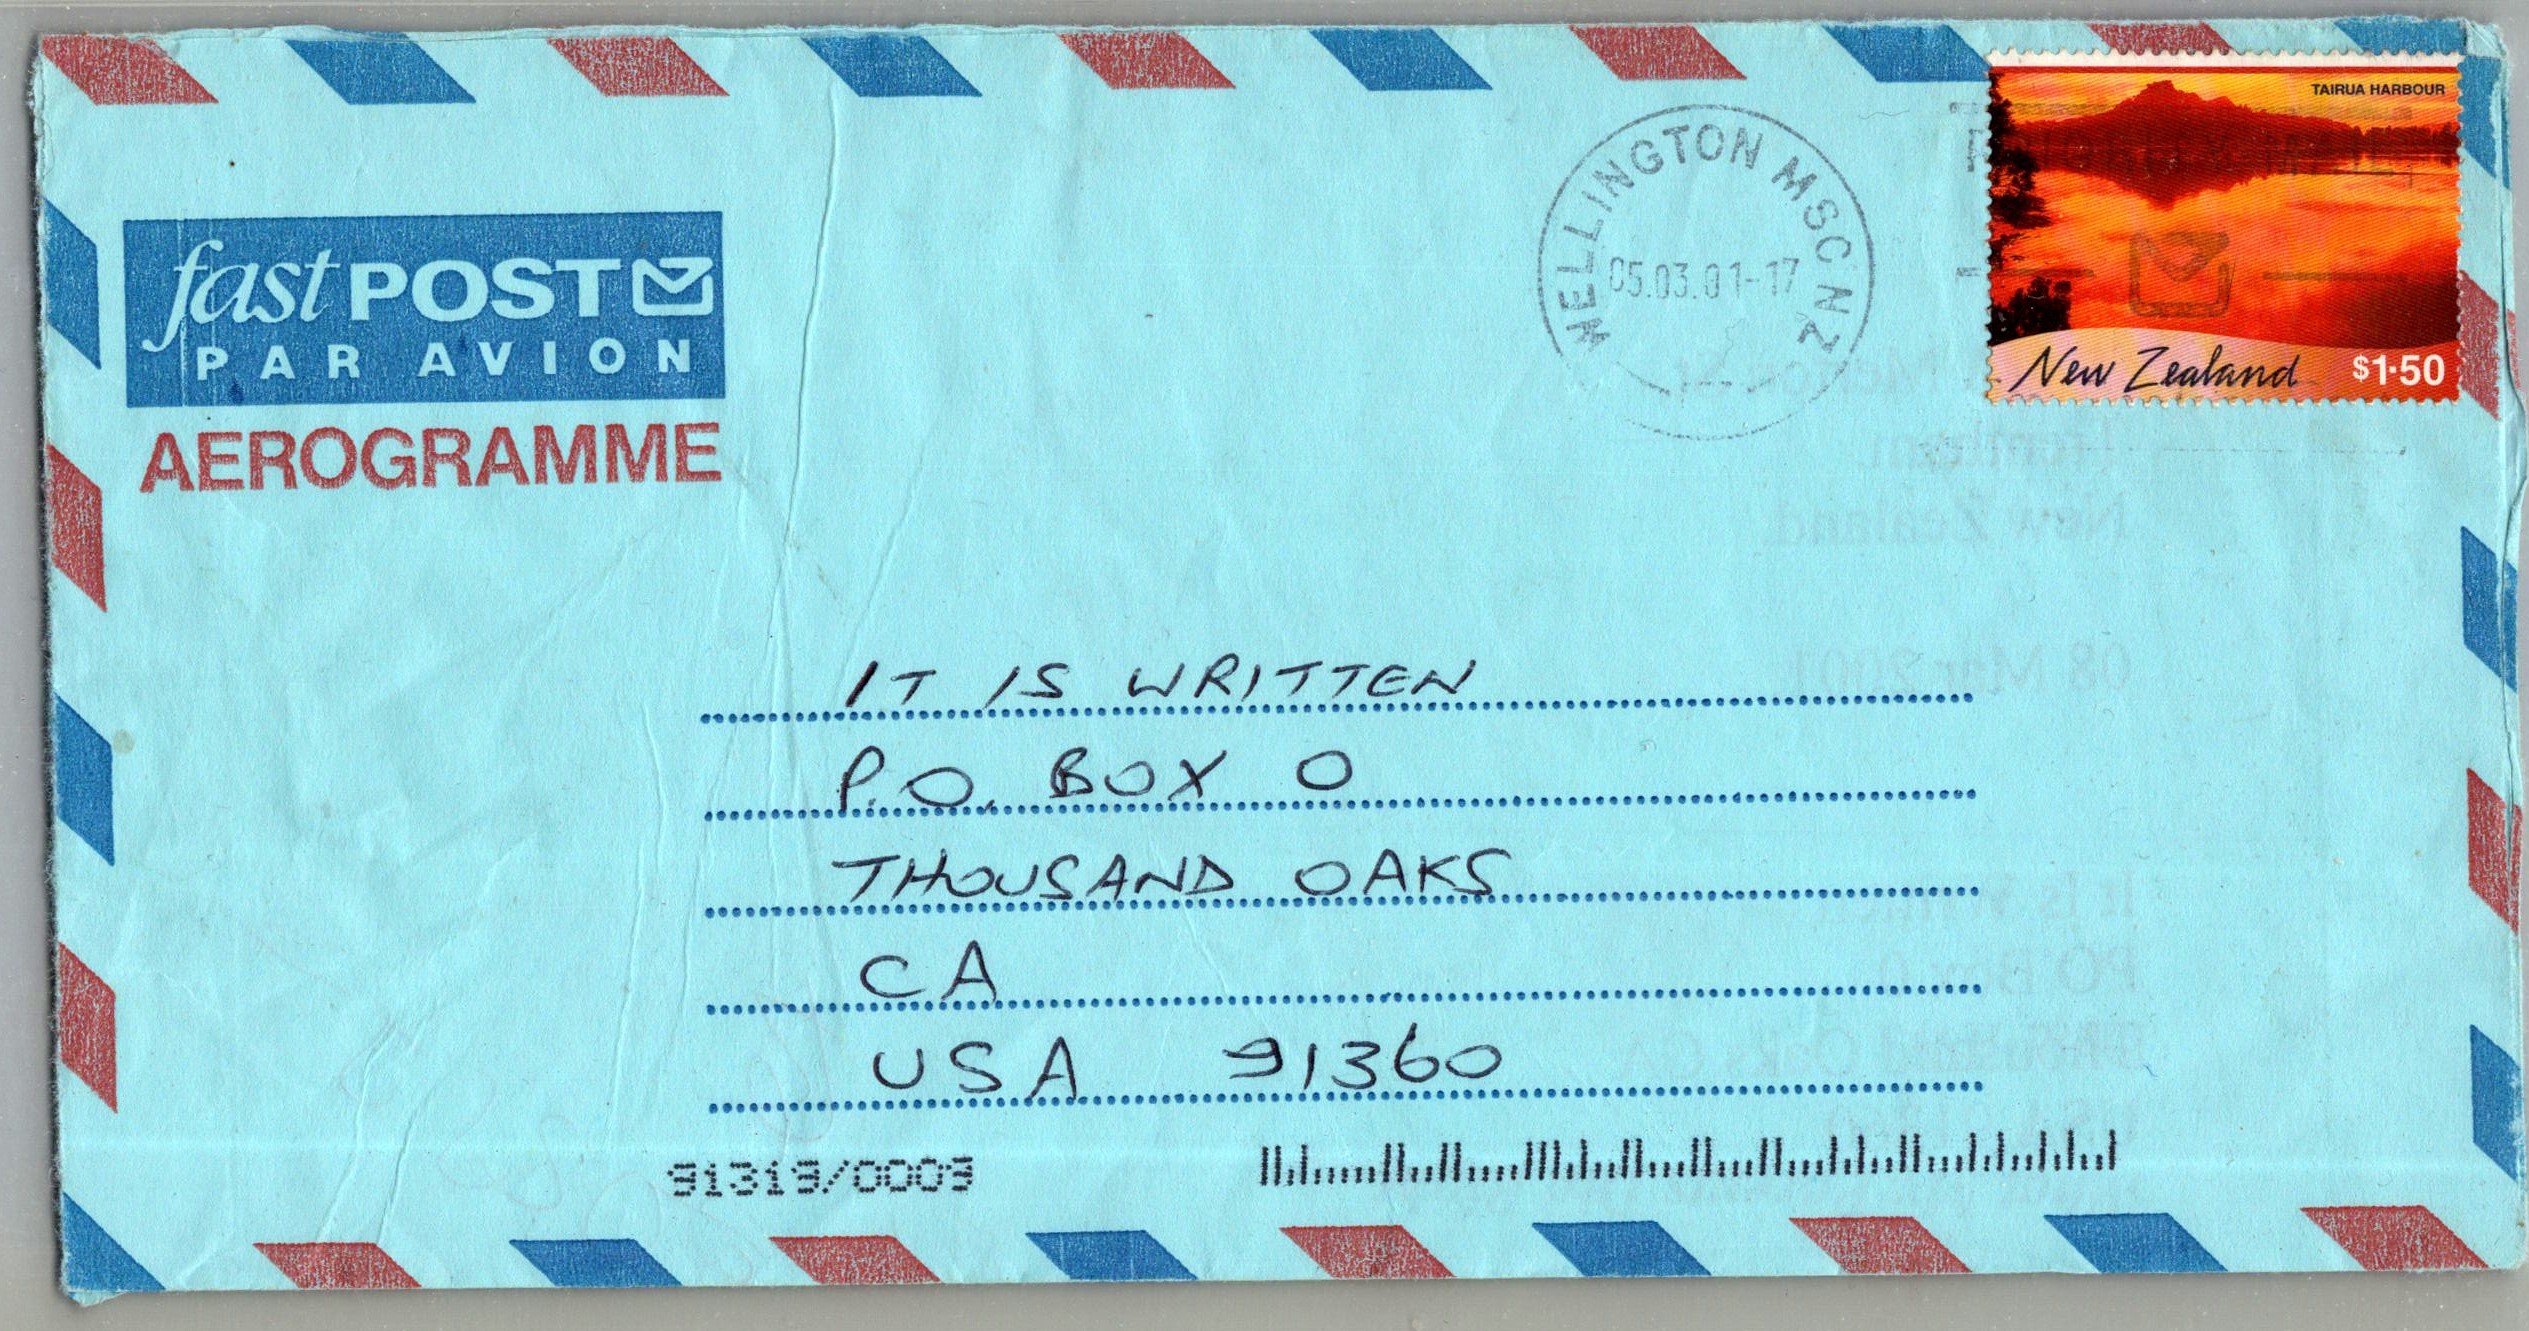 TAIRUA HARBOUR
New Zealand $1.50
WELLINGTON MSC NZ
05.03.01-17
fast POST
PAR AVION
AEROGRAMME
IT IS WRITTEN
P.O. BOX O
THOUSAND OAKS
CA
USA 91360
91319/0009